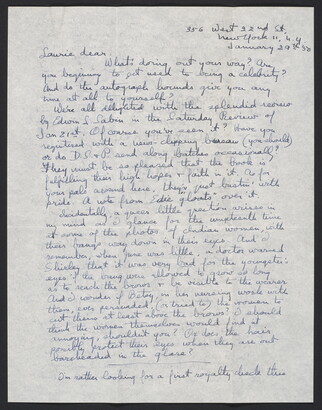 356 West 22nd St.
New York 11, N.Y.
January 29th '50
Laurie dear:
What's doing out your way? Are
you beginning to get used to being a celebrity?
And do the autograph hounds give you any
time at all to yourself?
We're all delighted with the splendid review
by Edwin L. Sabin in the Saturday Review of
Jan 21st. Of course you've seen it? Have you
registered with a news-clipping bureau (you should)
or do D. S. & P send along batches occasionally?
They must be so pleased that the book is
fulfilling their high hopes & faith in it. As for
your pals around here, they're just bustin' with
pride. A note from Edie gloats over it.
Incidentally, a queer little question arises in
my mind as I glance for the umpteenth time
at some of the photos of Indian women, with
their bangs way down in their eyes. And I
remember, when June was little, a doctor warned
Shirley that it was very bad for the youngster's
eyes if the bang were allowed to grow so long
as to reach the brows & be visible to the wearer.
And I wonder if Betsy, in her nursing work with
them, ever persuaded (or tried to) the women to
cut theirs at least above the brows? I should
think the women themselves would find it
annoying, shouldn't you? Or does the hair
possibly protect their eyes when they are out
bareheaded in the glare?
I'm rather looking for a first royalty check this